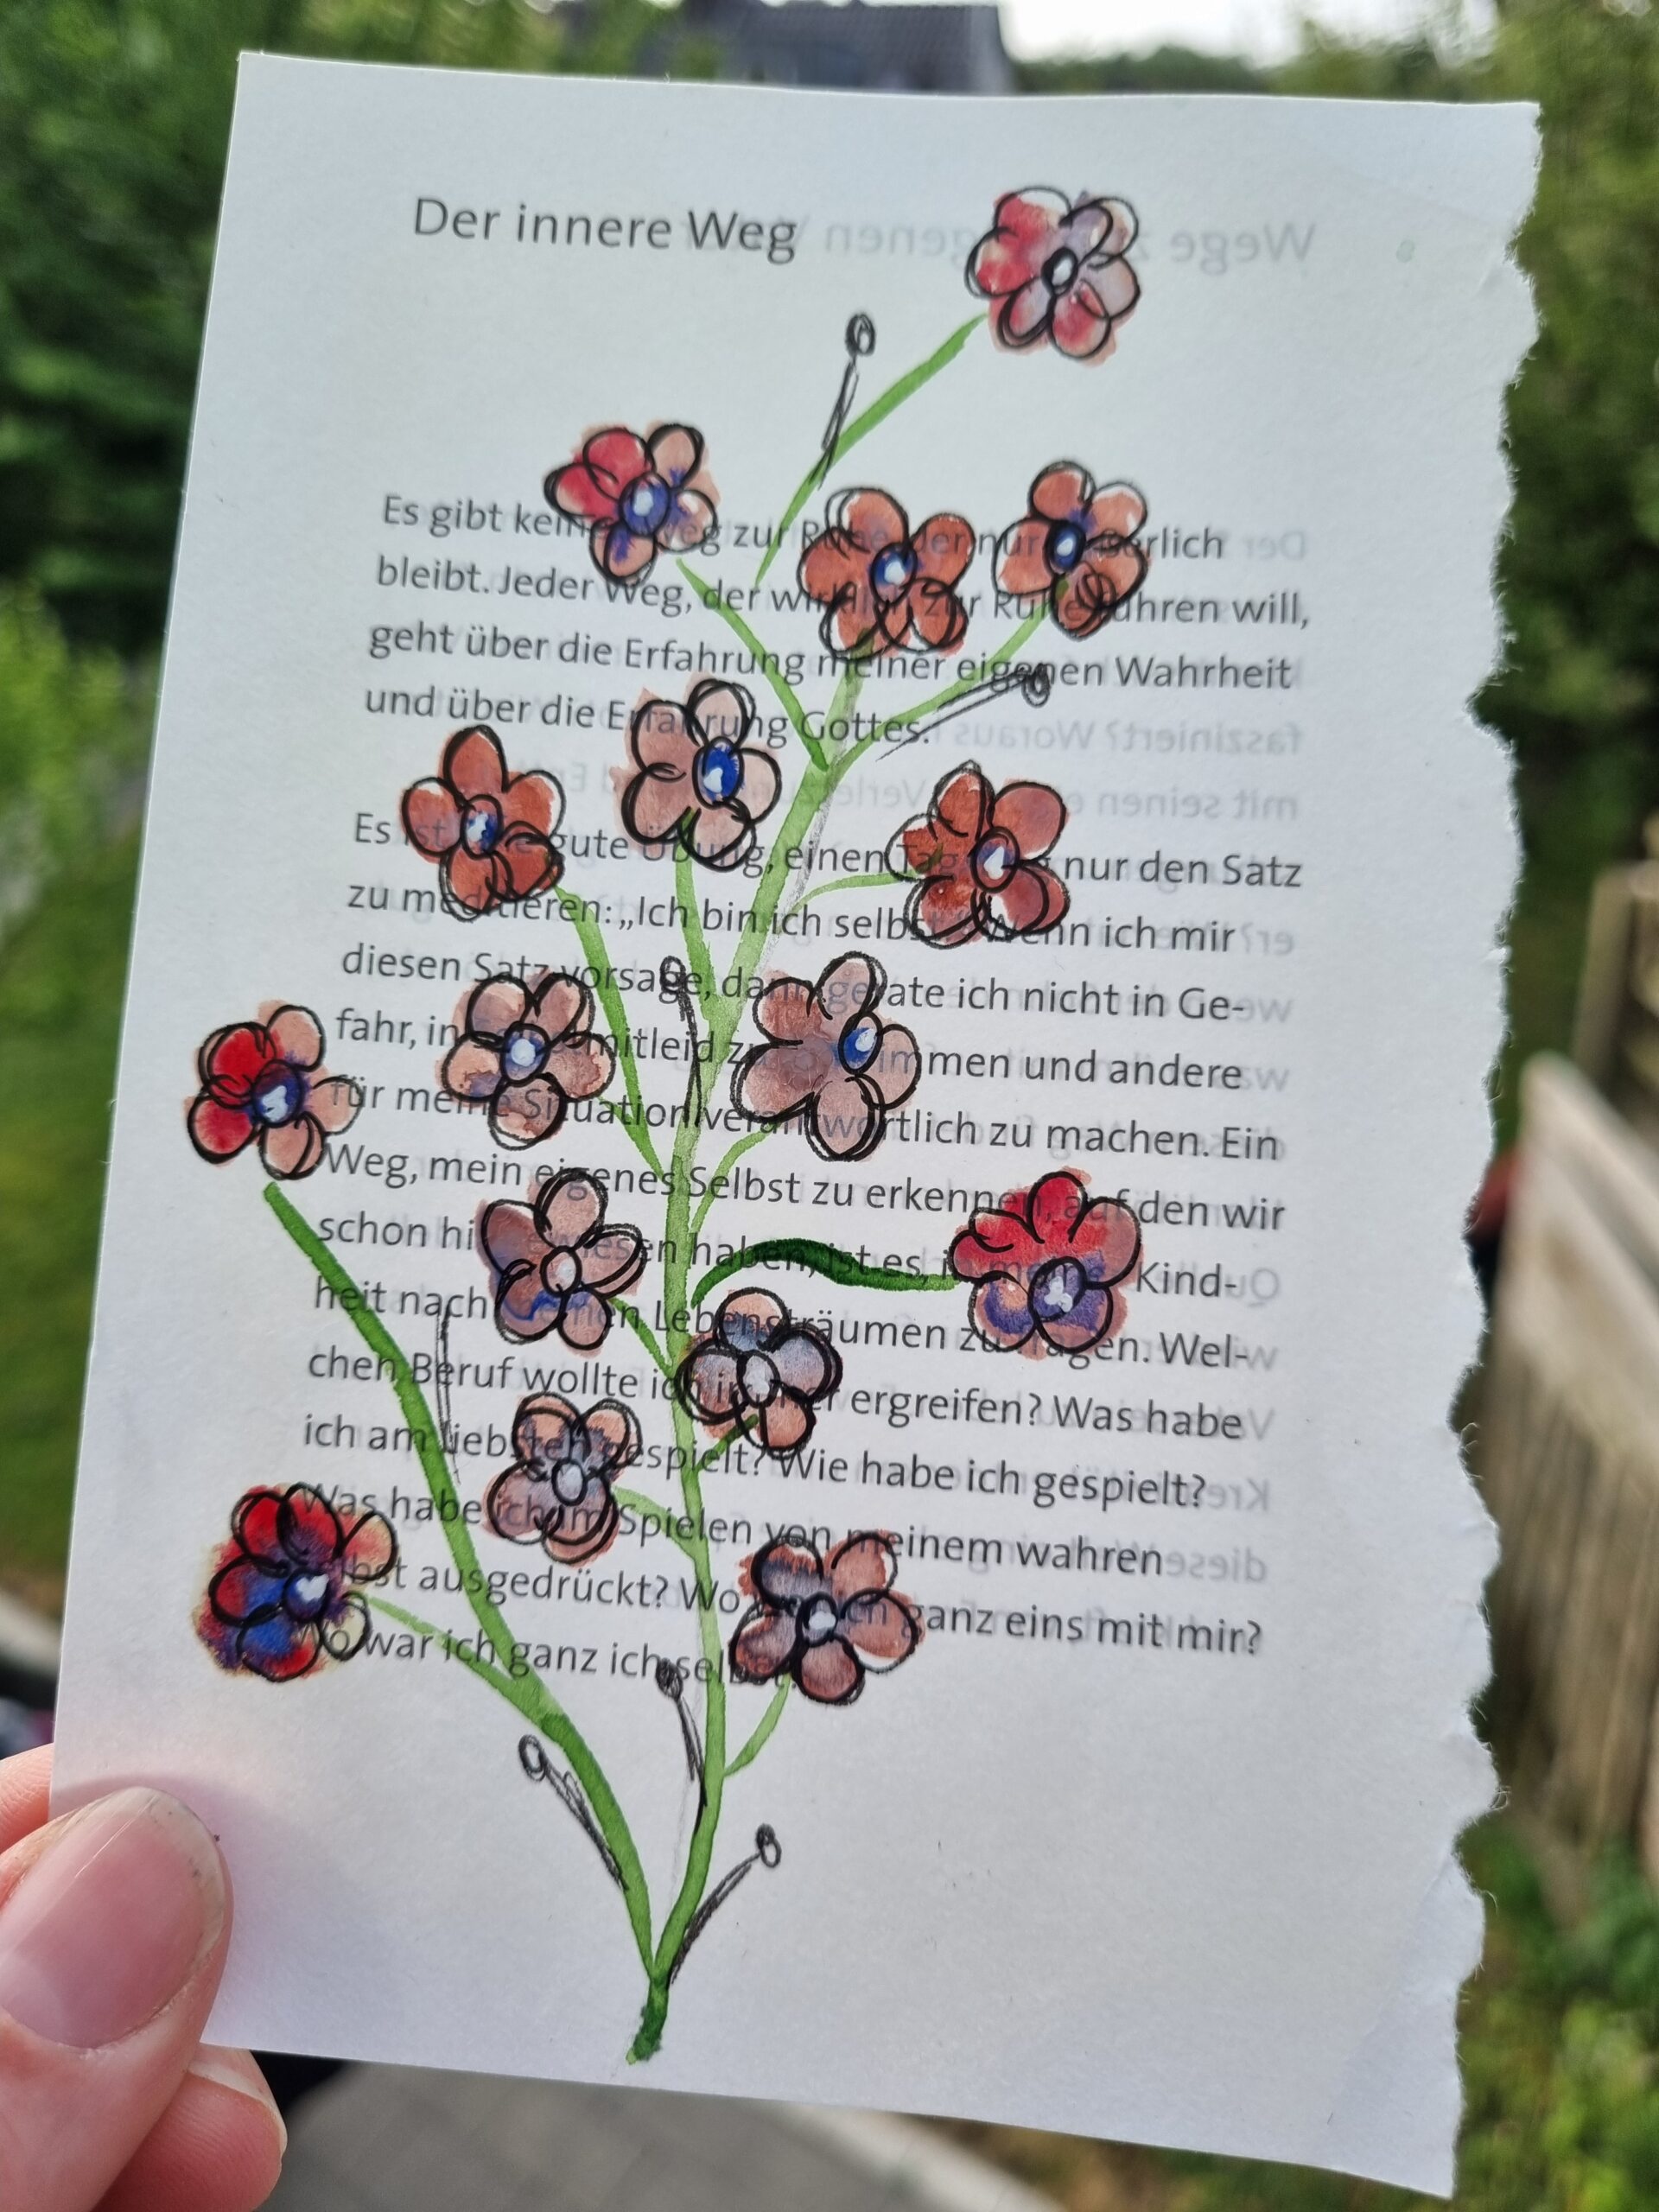 Der innere Weg
Es gibt keinen Weg zur Ruhe, der nur äusserlich
bleibt. Jeder Weg, der wirklich zur Ruhe führen will,
geht über die Erfahrung meiner eigenen Wahrheit
und über die Erfahrung Gottes.
Es ist eine gute Übung, einen Tag lang nur den Satz
zu meditieren: „Ich bin ich selbst.“ Wenn ich mir
diesen Satz vorsage, dann gerate ich nicht in Ge-
fahr, in Selbstmitleid zu schwimmen und andere
für meine Situation verantwortlich zu machen. Ein
Weg, mein eigenes Selbst zu erkennen, auf den wir
schon hingewiesen haben, ist es, in meiner Kind-
heit nach meinen Lebensträumen zu fragen. Wel-
chen Beruf wollte ich immer ergreifen? Was habe
ich am liebsten gespielt? Wie habe ich gespielt?
Was habe ich im Spielen von meinem wahren
Selbst ausgedrückt? Wo war ich ganz eins mit mir?
Wo war ich ganz ich selbst?
Wege